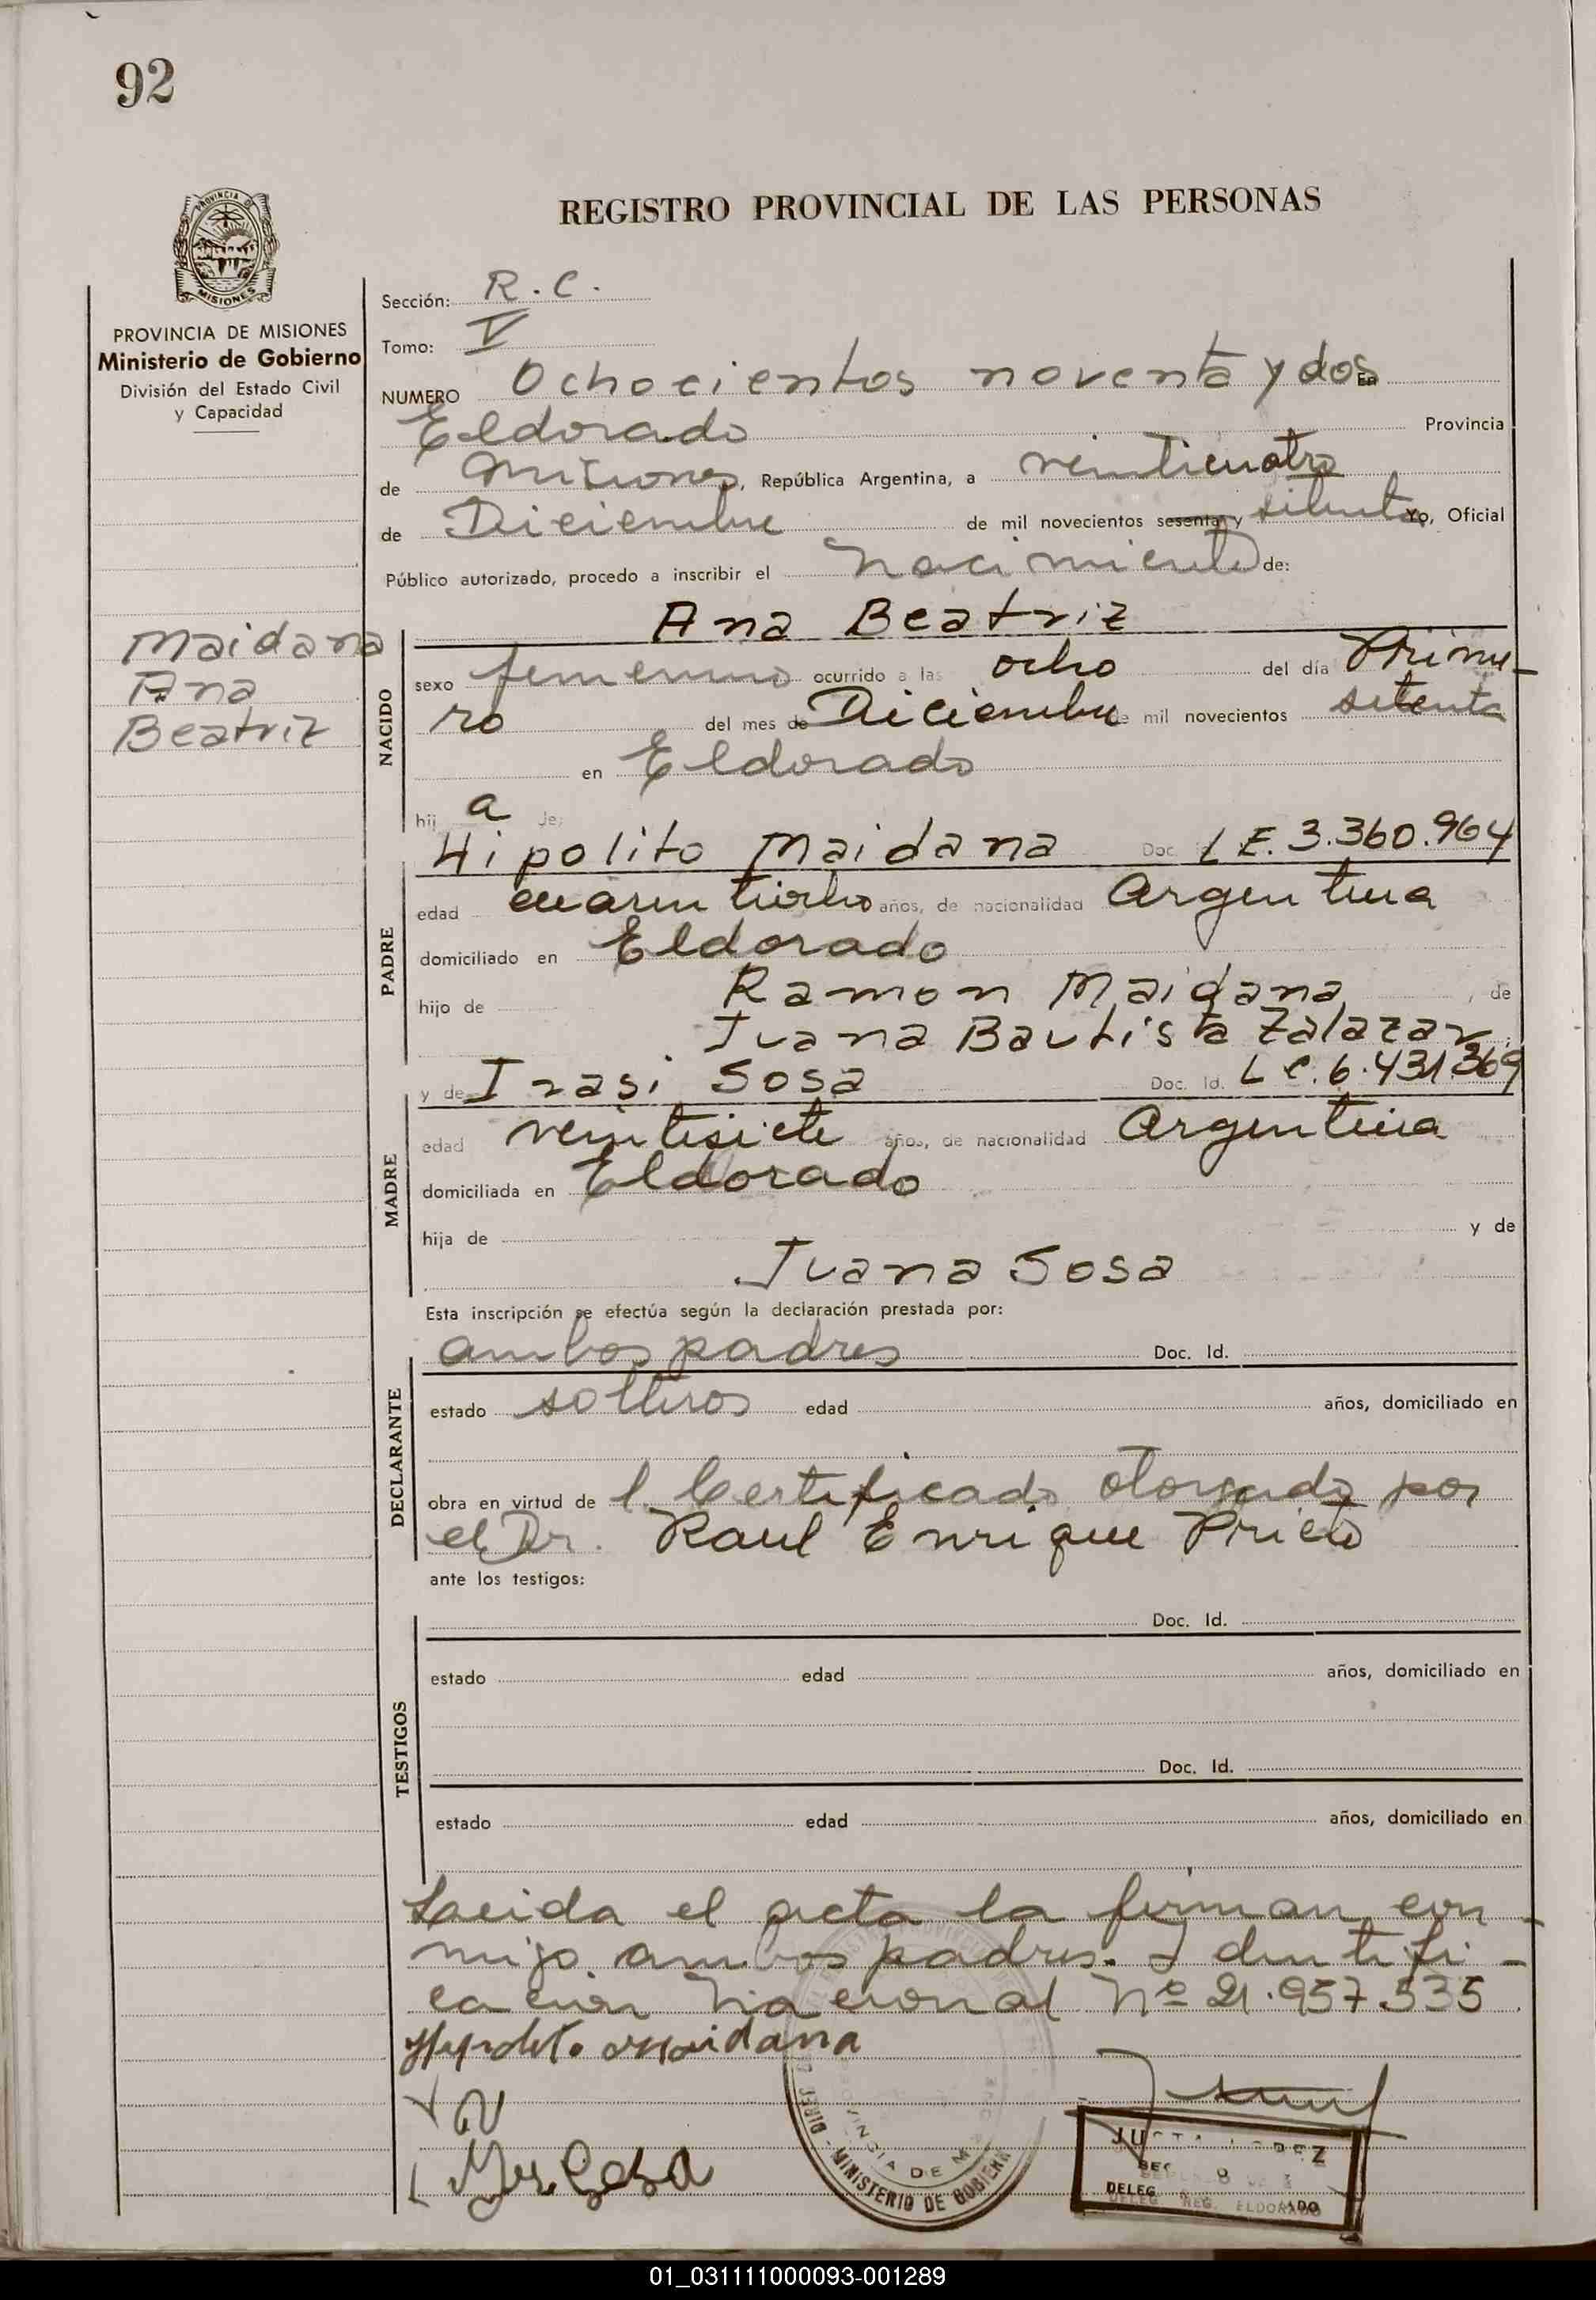 92
PROVINCIA DE
MISIONES
REGISTRO PROVINCIAL DE LAS PERSONAS
PROVINCIA DE MISIONES
Ministerio de Gobierno
División del Estado Civil
y Capacidad
Sección: R.C.
Tomo: V
NUMERO Ochocientos noventa y dos En
Eldorado Provincia
de Misiones, República Argentina, a veinticuatro
de Diciembre de mil novecientos sesenta y setenta Yo, Oficial
Público autorizado, procedo a inscribir el Nacimiento de:
Maidana
Ana
Beatriz
NACIDO
Ana Beatriz
sexo femenino ocurrido a las ocho del día Prime-
ro del mes de Diciembre de mil novecientos setenta
en Eldorado
hij a de:
Hipolito Maidana Doc. L E. 3.360.964
PADRE
edad cuarentiocho años, de nacionalidad Argentina
domiciliado en Eldorado
hijo de Ramon Maidana, de
Juana Bautista Zalazar
y de Irasi Sosa Doc. Id. L C. 6.431369
MADRE
edad veintisiete años, de nacionalidad Argentina
domiciliada en Eldorado
hija de y de
Juana Sosa
Esta inscripción se efectúa según la declaración prestada por:
DECLARANTE
ambos padres Doc. Id.
estado solteros edad años, domiciliado en
obra en virtud de l Certificado otorgado por
el Dr. Raul Enrique Prieto
ante los testigos:
TESTIGOS
Doc. Id.
estado edad años, domiciliado en
Doc. Id.
estado edad años, domiciliado en
Leida el acta la firman con-
migo ambos padres. Identifi-
cacion Nacional Nº 21.957.535
Hipolito Maidana
Sosa
MINISTERIO DE GOBIERN
DELEG. REG. ELDORADO
01_031111000093-001289